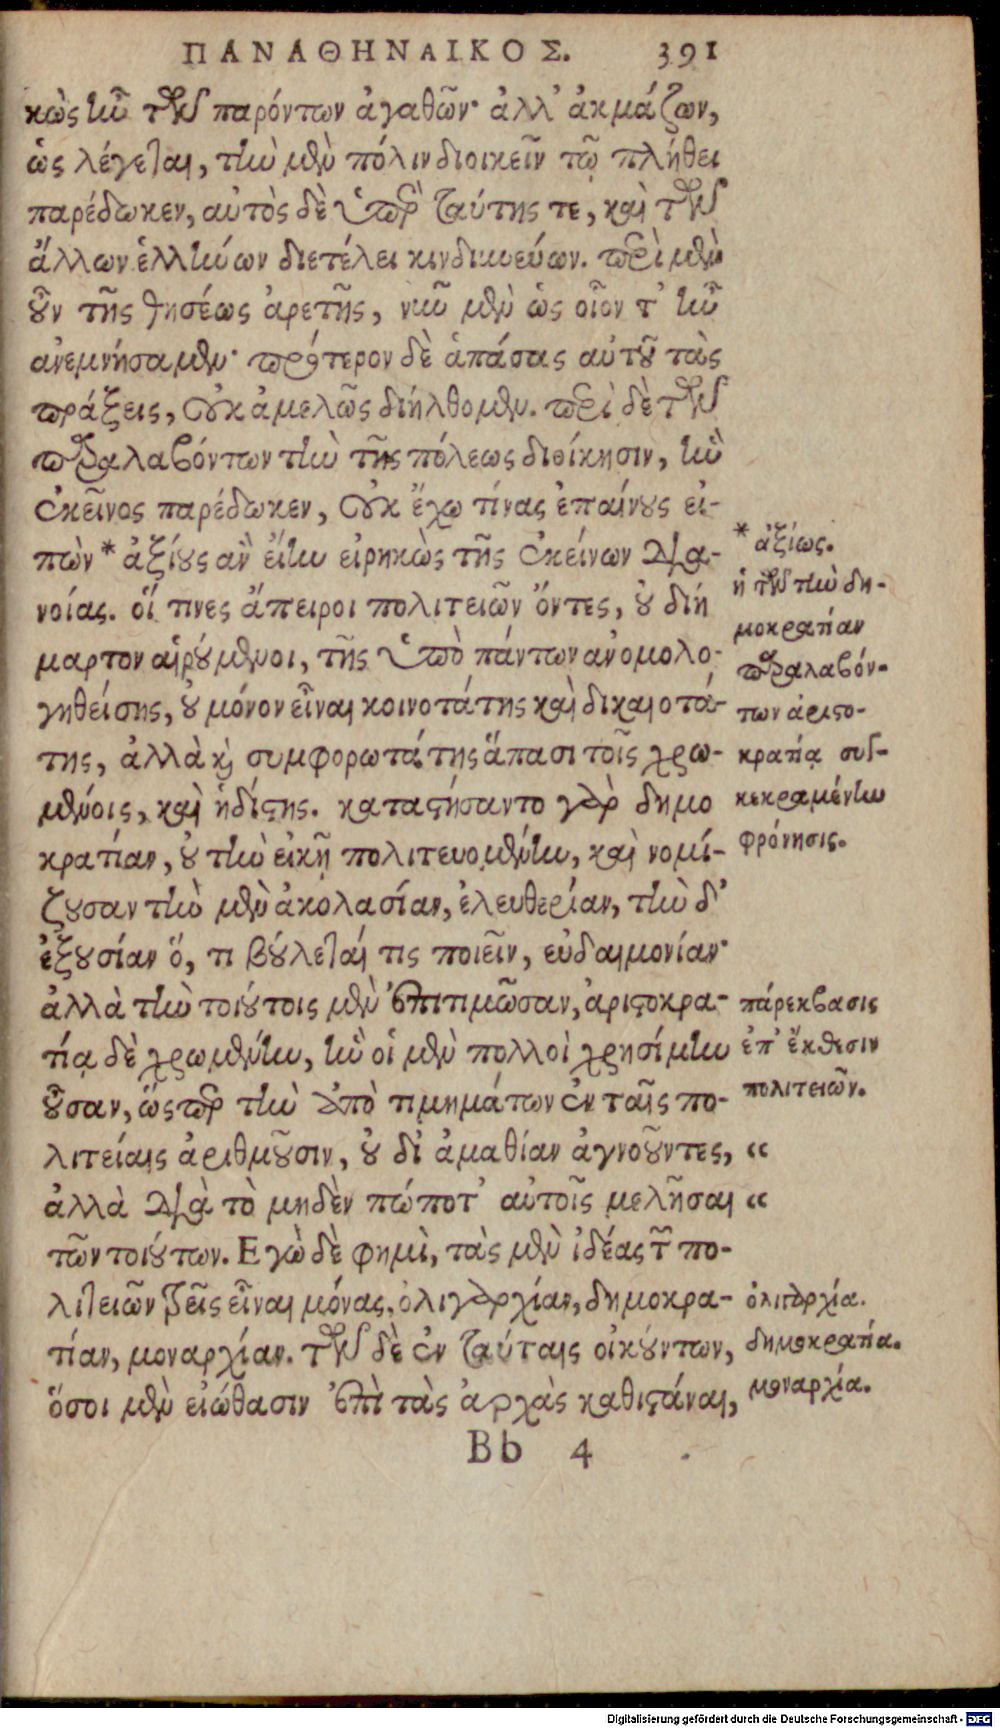 ΠΑΝΑΘΗΝΑΙΚΟΣ. 391
κὼς ἦν τῶν παρόντων ἀγαθῶν· ἀλλ' ἀκμάζων,
ὡς λέγεται, τὴν μὲν πόλιν διοικεῖν τῷ πλήθει
παρέδωκεν, αὐτὸς δὲ ὑπὲρ ταύτης τε, καὶ τῶν
ἄλλων ἑλλήνων διετέλει κινδυνεύων. περὶ μὲν
οὖν τῆς θησέως ἀρετῆς, νῦν μὲν ὡς οἷον τ' ἦν
ἀνεμνήσαμεν· πρότερον δὲ ἁπάσας αὐτοῦ τὰς
πράξεις, οὐκ ἀμελῶς διήλθομεν. περὶ δὲ τῶν
παραλαβόντων τὴν τῆς πόλεως διοίκησιν, ἣν
ἐκεῖνος παρέδωκεν, οὐκ ἔχω τίνας ἐπαίνους εἰ-
πὼν * ἀξίους ἂν εἴην εἰρηκὼς τῆς ἐκείνων δια-
νοίας. οἵ τινες ἄπειροι πολιτειῶν ὄντες, οὐ διή
μαρτον αἱρούμενοι, τῆς ὑπὸ πάντων ἀνομολο-
γηθείσης, οὐ μόνον εἶναι κοινοτάτης καὶ δικαιοτά-
της, ἀλλὰ καὶ συμφορωτάτης ἅπασι τοῖς χρω-
μένοις, καὶ ἡδίστης. κατεστήσαντο γὰρ δημο
κρατίαν, οὐ τὴν εἰκῆ πολιτευομένην, καὶ νομί-
ζουσαν τὴν μὲν ἀκολασίαν, ἐλευθερίαν, τὴν δ'
ἐξουσίαν ὅ, τι βούλεται τις ποιεῖν, εὐδαιμονίαν·
ἀλλὰ τὴν τοιούτοις μὲν ἐπιτιμῶσαν, ἀριστοκρα-
τίᾳ δὲ χρωμένην, ἣν οἱ μὲν πολλοὶ χρησίμην
οὖσαν, ὥσπερ τὴν ἀπὸ τιμημάτων ἐν ταῖς πο-
λιτείαις ἀριθμοῦσιν, οὐ δι' ἀμαθίαν ἀγνοοῦντες, “
ἀλλὰ διὰ τὸ μηδὲν πώποτ' αὐτοῖς μελῆσαι “
τῶν τοιούτων. Εγὼ δὲ φημὶ, τὰς μὲν ἰδέας τῶν πο-
λιτειῶν τρεῖς εἶναι μόνας, ὀλιγαρχίαν, δημοκρα-
τίαν, μοναρχίαν. τῶν δὲ ἐν ταύταις οἰκούντων,
ὅσοι μὲν εἰώθασιν ἐπὶ τὰς ἀρχὰς καθιστάναι,
Bb 4
* ἀξίως.
ἡ τῶν τὴν δη-
μοκρατίαν
παραλαβόν-
των ἀριστο-
κρατίᾳ συγ-
κεκραμένην
φρόνησις.
πάρεκβασις
ἐπ' ἔκθεσιν
πολιτειῶν.
ὀλιγαρχία.
δημοκρατία.
μοναρχία.
Digitalisierung gefördert durch die Deutsche Forschungsgemeinschaft - DFG